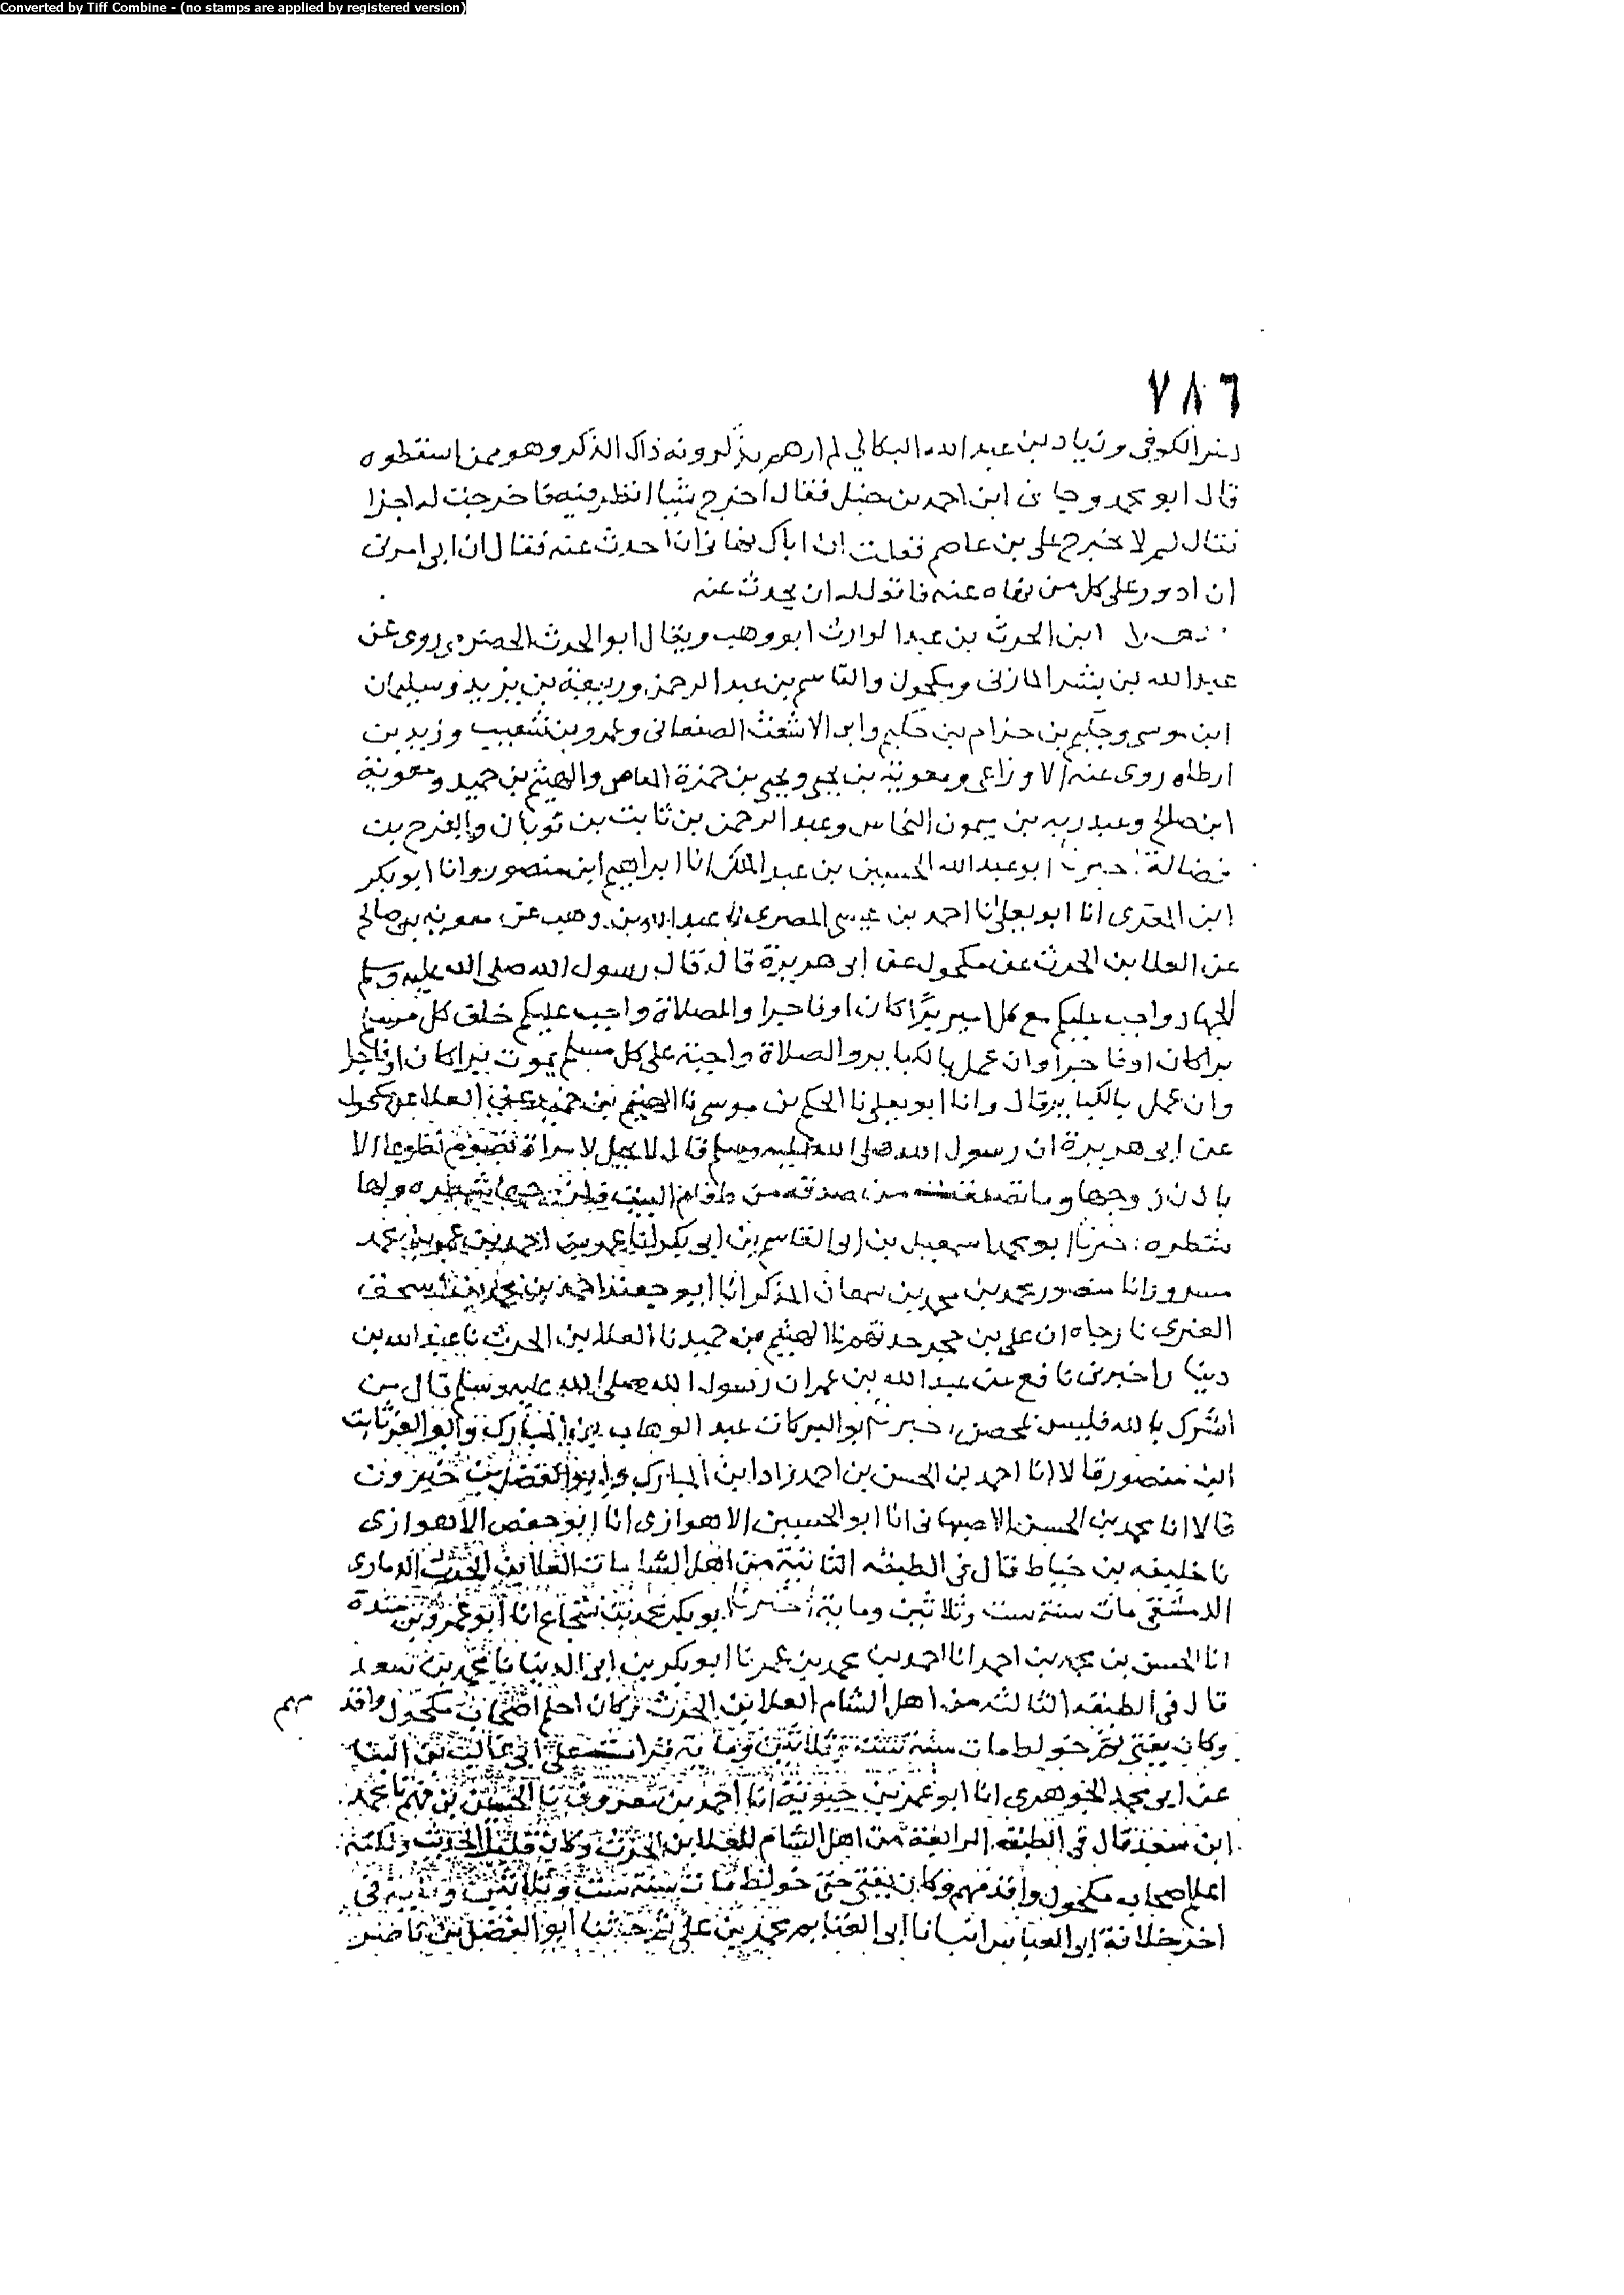 Converted by Tiff Combine - (no stamps are applied by registered version)
٧٨٦
الكوفى وزياد بن عبد الله البكالي لم ارهم يذكرونه ذاك الذكر وهو ممن اسقطوه
قال ابو محمد وجانى ابن احمد بن حنبل فقال اخرج شيا انظر فيه فاخرجت له اجزا
فقال ليس لا خبر ح على بن عاصم فقلت ان اباك نهانى ان احدث عنه فقال ان ابى امرنى
ان ادور على كل من نهاه عنه فاقول له ان يحدث عنه
ابن الحرث بن عبد الوارث ابو وهب ويقال ابو الحرث الحضرمى روى عن
عبد الله بن بشر المازنى ومكحول والقاسم بن عبد الرحمن وربيعة بن يزيد وسليمان
ابن موسى وحكيم بن حزام بن حكيم وابو الاشعث الصنعانى وعمرو بن شعيب وزيد بن
ارطاه روى عنه الاوزاعى ومعوية بن يحيى ويحيى بن حمزة القاضى والهيثم بن حميد ومعوية
ابن صالح وعبد ربه بن ميمون النحاس وعبد الرحمن بن ثابت بن ثوبان والفرج بن
فضالة اخبرنا ابو عبد الله الحسين بن عبد الملك انا ابراهيم ابن منصور وانا ابو بكر
ابن المقرى انا ابو يعلى نا احمد بن عيسى المصرى نا عبد الله بن وهب عن معوية بن صالح
عن العلا بن الحرث عن مكحول عن ابى هريرة قال قال رسول الله صلى الله عليه وسلم
الجهاد واجب عليكم مع كل امير برًا كان او فاجرا والصلاة واجب عليكم خلف كل مسلم
برا كان او فاجرا وان عمل بالكبا ير والصلاة واجبة على كل مسلم يموت برا كان او فاجرا
وان عمل بالكبا ير قال وانا ابو يعلى نا الحكم بن موسى نا الهيثم بن حميد عن العلا عن مكحول
عن ابى هريرة ان رسول الله صلى الله عليه وسلم قال لا يحل لامراة تصوم تطوعا الا
باذن زوجها وما تصدقت من صدقه من طعام البيت شطره ولها
شطره اخبرنا ابو اسمعيل بن ابى القاسم بن ابى بكر انا عمر بن احمد بن عمر بن محمد
مسرور انا منصور محمد بن محمد بن سمعان المذكر انا ابو احمد بن محمد بن اسحق
العنبرى نا رجاه ان على بن حجر حدثهم نا الهيثم بن حميد نا العلا بن الحرث نا عبد الله بن
دينا راخبرنى نافع عن عبد الله بن عمر ان رسول الله صلى الله عليه وسلم قال من
اشرك بالله فليس بمحصن اخبرنا ابو البركات عبد الوهاب بن المبارك وابو العز ثابت
ابن منصور قالا انا احمد بن الحسن بن احمد زاد ابن المبارك وابو الفضل بن خيرون
قالا انا محمد بن الحسن الاصبهانى انا ابو الحسين الاهوازى انا ابو حفص الاهوازى
نا خليفه بن خياط قال فى الطبقه الثانية من اهل الشا مات العلا بن الحرث الدمارى
الدمشقى مات سنة ست وثلاثين وماية اخبرنا ابو بكر محمد بن شجاع انا ابو عمرو بن مندة
انا الحسن بن محمد بن احمد انا احمد بن محمد بن عمر نا ابو بكر بن ابى الدنيا نا محمد بن سعد
قال فى الطبقه الثالثه من اهل الشام العلا بن الحرث وكان اعلم اصحاب مكحول واقد
مهم
وكان يفتى حتى خولط مات سنة ستة وثلاثين وماية قرات على ابى غالب بن البنا
عن ابى محمد الجوهرى انا ابو عمر بن حيوية انا احمد بن معروف نا الحسين بن فهم نا محمد
ابن سعد قال فى الطبقه الرابعة من اهل الشام العلا بن الحرث وكان قليل الحديث ولكنه
اعلم اصحاب مكحول واقدمهم وكان يفتى حتى خولط مات سنة ست وثلاثين وماية فى
اخر خلافة ابو العباس انبا نا ابى الغنايم محمد بن على ثم حدثنا ابو الفضل بن ناصر